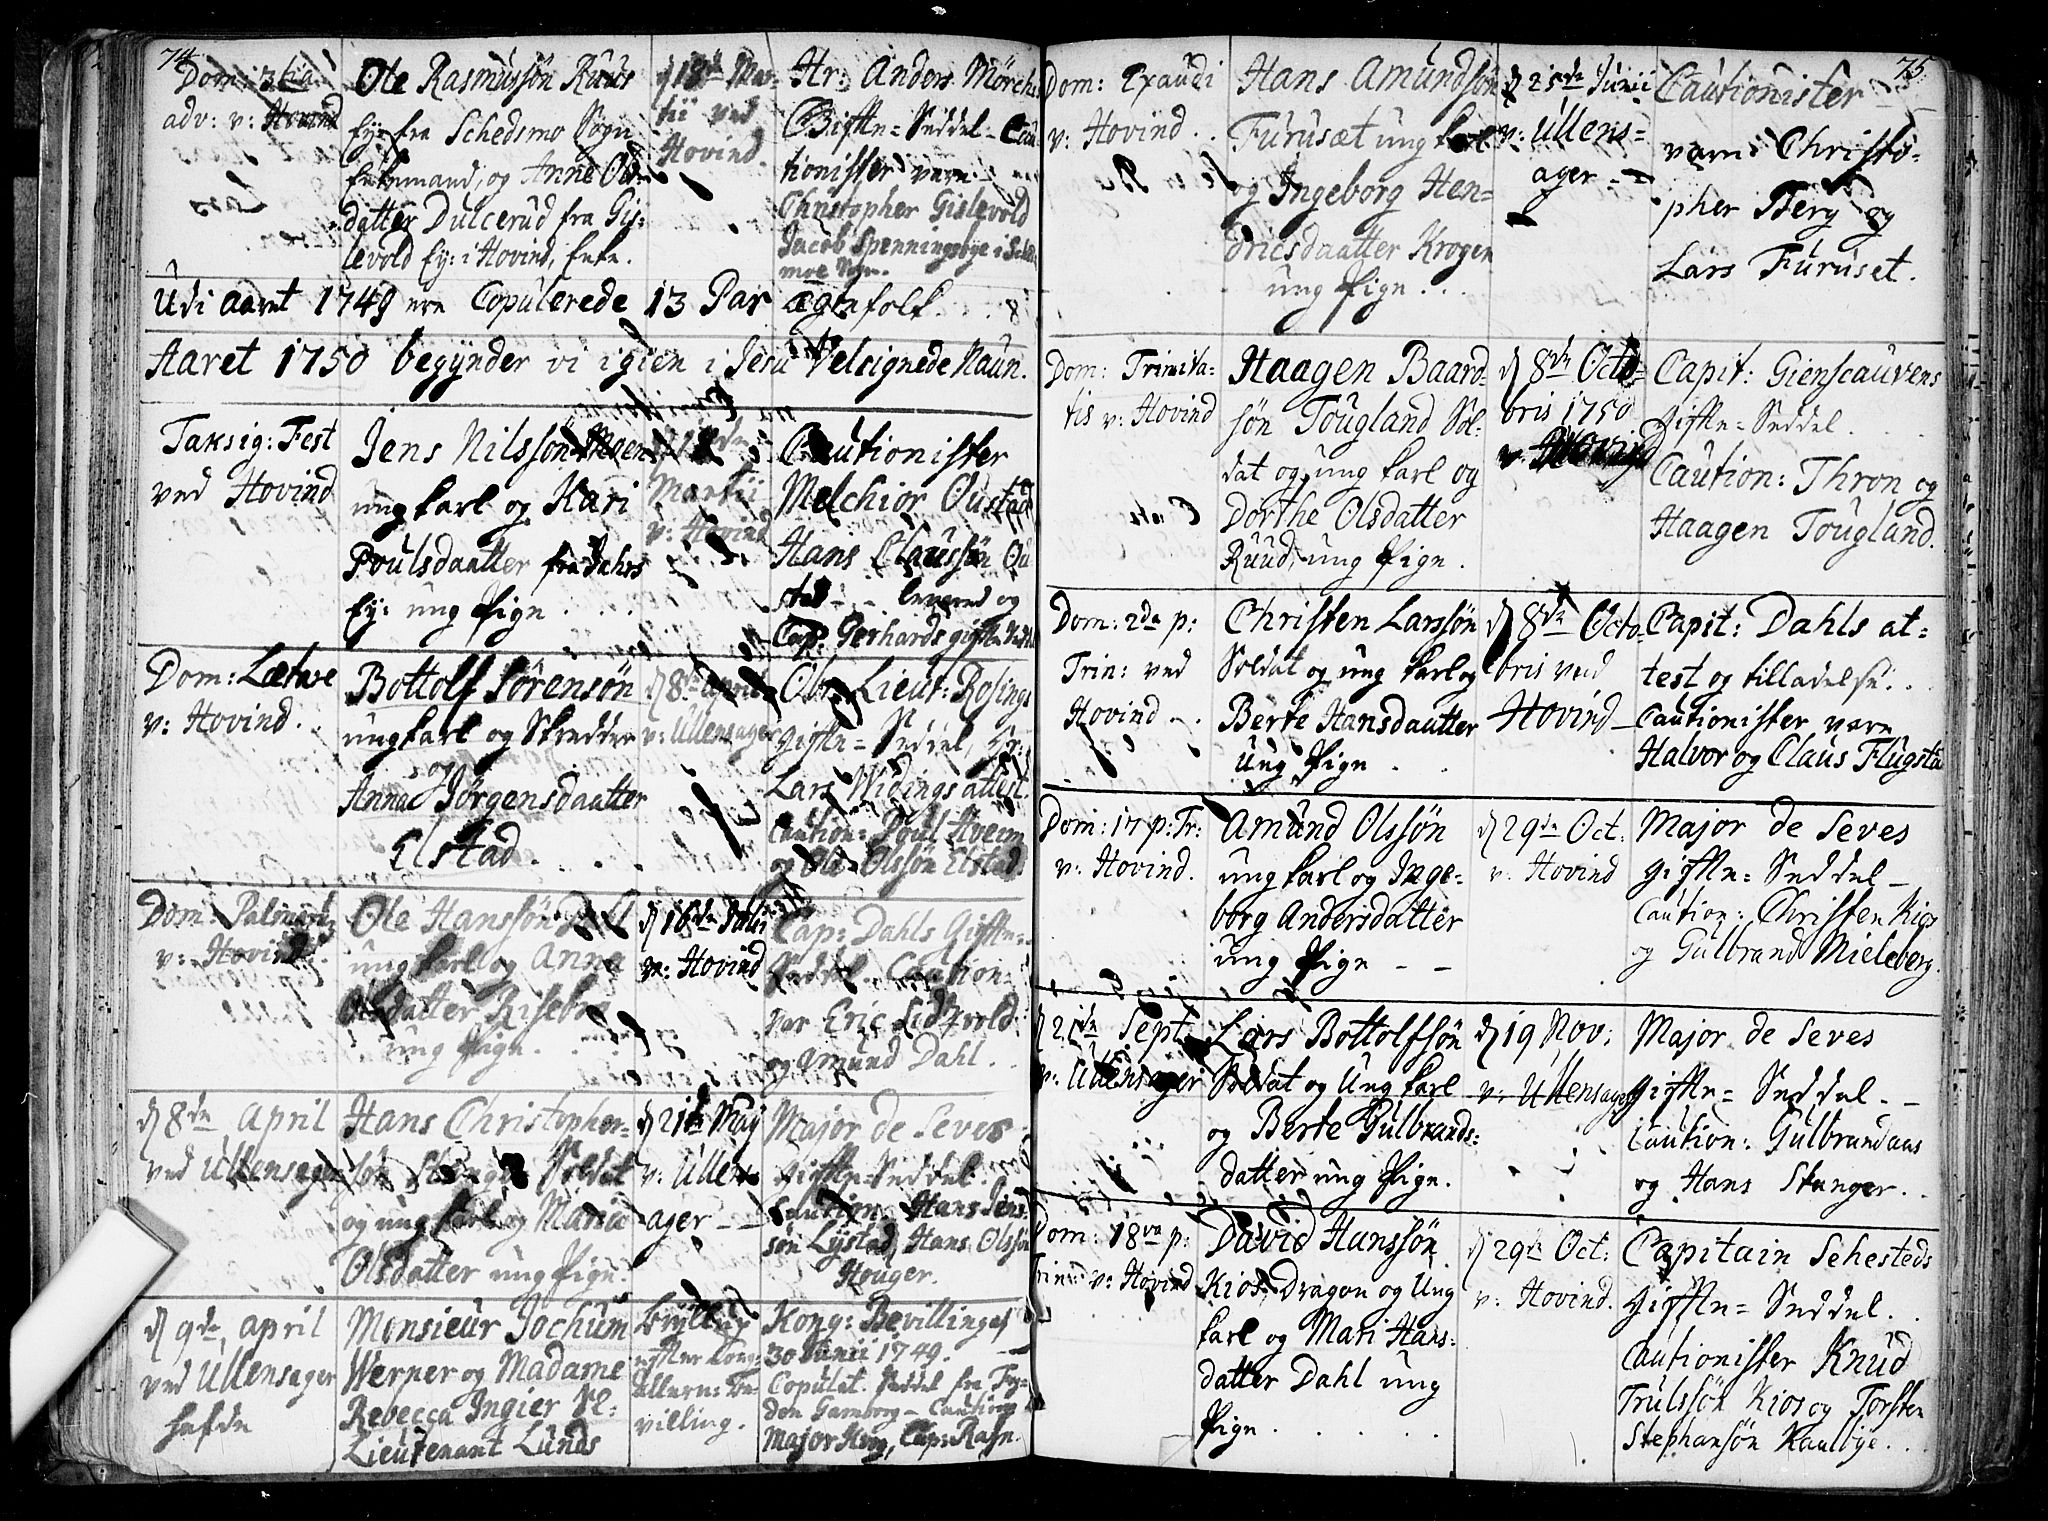 74
Dom: 3tia
adv: v: Hovind
Ole Rasmussøn Ruus
Ey: fra Schedsmo Sogn
Enkemand, og Anne Ols=
datter Dulcerud fra Gis=
levold Ey: i Hovind, Enke.
d 18de Mar=
tii ved
Hovind.
Hr: Anders Mørchs
Gifte= Seddel - Cau=
tionister vare
Christopher Gislevold
Jacob Spenningsbye i Scheds
moe Sogn.
Udi Aaret 1749 ere Copulerede 13 Par ægtefolk . . 8
Aaret 1750 begynder vi igien i Jesu Velsignede Naun.
Taksig: Fest
ved Hovind
Jens Nilssøn Moen
ung karl og Kari
Poulsdaatter fra Jahrs
Ey: ung Pign . . .
Martii
v: Hovind
Cautionister
Melchior Oustad
Hans Claussøn Ou
stad - - og
Cap: Gerhards gifte Seddel
Dom: Lætare
v: Hovind . .
Bottolf Sørensøn
ung karl og Skredder
Anna Jørgensdaatter
Elstad . . .
d 8de April
v: Ullensager
Ober Lieut: Rosings
gifte= Seddel, Hr:
Lars Widings attest.
Caution: Poul Hveem
og Ole Olssøn Elstad.
Dom: Palmar:
v: Hovind.
Ole Hanssøn Dahl
ung karl og Anna
Olsdatter Riseberg
ung Pign. . .
d 16de Julii
v: Hovind
Cap: Dahls Gifte=
Seddel. Caution:
var Eric Lidzvold
og Amund Dahl . .
d 8de April
ved Ullensager
Hans Christopher=
søn Stenger Soldat
og ung karl og Maria
Olsdatter ung Pign.
d 21de Maj
v: Ullens
ager - -
Major de Seves
gifte= Seddel.
Caution: Hans Jens
søn Lystad, Hans Olssøn
Houger.
d 9de April
ved Ullensager
hefde
Monsieur Jochum
Werner og Madame
Rebecca Ingier Sl:
Lieutenant Lunds
Bryllup
efter Kong:
Allern: Be=
villing.
Kong: Bevillings
30 Junii 1749. -
Copulat. Seddel fra
den Gamborg - Caution
Major Høeg, Cap: Rasn
75.
Dom: Exaudi
v: Hovind . .
Hans Amundsøn
Furusæt ung karl
og Ingeborg Hen=
dricsdaatter Krogen
ung Pign . . .
d 25de Junii
v: Ullens=
ager - -
Cautionister
vare Christo=
pher Berg og
Lars Furuset.
Dom: Trinita=
tis v: Hovind
Haagen Baard=
søn Tougland Sol=
dat og ung karl og
Dorthe Olsdatter
Ruud, ung Pign .
d 8de Octo=
bris 1750
v: Hovind
Capit: Gienscauvens
gifte= Seddel. . .
Caution: Thron og
Haagen Tougland.
Dom: 2da p:
Trin: ved
Hovind - .
Christen Larssøn
Soldat og ung karl og
Berte Hansdaatter
Ung Pign . .
d 8de Octo=
bris ved
Hovind -
Capit: Dahls at=
test og tilladelse. . .
Cautionister vare
Halvor og Claus Flugsta
Dom: 17 p: Tr:
v: Hovind.
Amund Olssøn
ung karl og Inge=
borg Andersdatter
ung Pign - -
d 29de Oct:
v: Hovind
Major de Seves
gifte= Seddel -
Caution: Christen Kios
og Gulbrand Mieleberg.
d 21de Sept
v: Ullensager
Lars Bottolfsøn
Soldat og Ung karl
og Berte Gulbrands=
datter ung Pign.
d 19 Nov:
v: Ullensager
Major de Seves
gifte= Seddel. -
Caution: Gulbrand aas
og Hans Stenger. .
Dom: 18va p:
Trin: v: Hovind
David Hanssøn
Kios, Dragon og Ung
karl og Mari Hans=
datter Dahl ung
Pign . . . . .
d 29de Oct:
v: Hovind.
Capitain Sehesteds
Gifte= Seddel. .
Cautionister Knud
Trulssøn Kios og Torsten
Stephansøn Kaulbye. . .